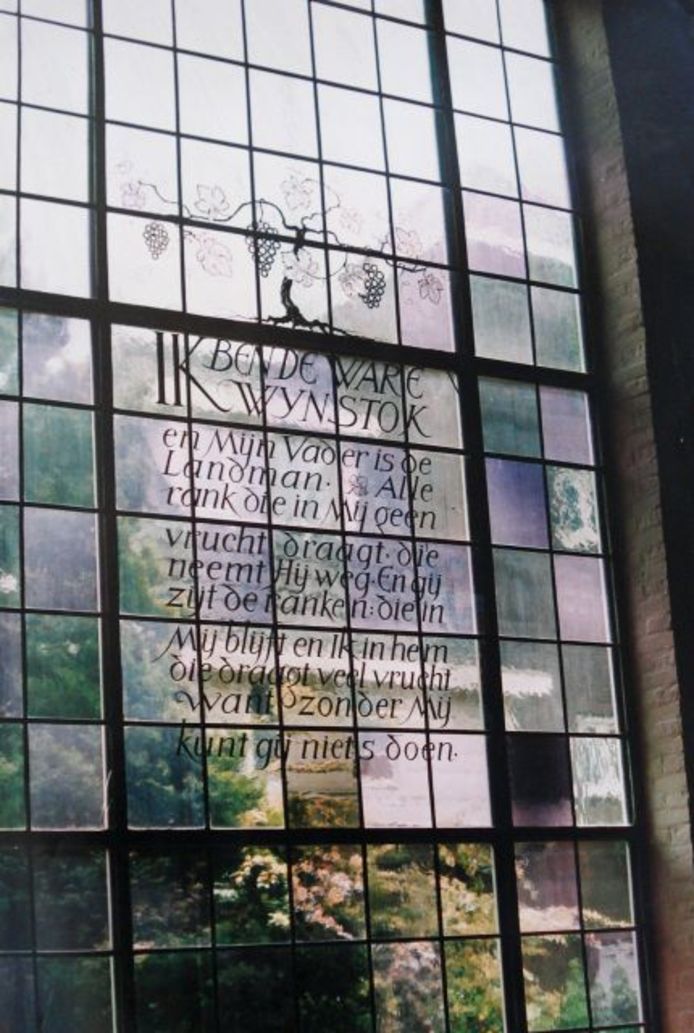 IK BEN DE WARE
WYNSTOK
en Mijn Vader is de
Landman. Alle
rank die in Mij geen
vrucht draagt. die
neemt Hij weg. En gij
zijt de ranken: die in
Mij blijft en Ik in hem
die draagt veel vrucht
want zonder Mij
kunt gij niets doen.